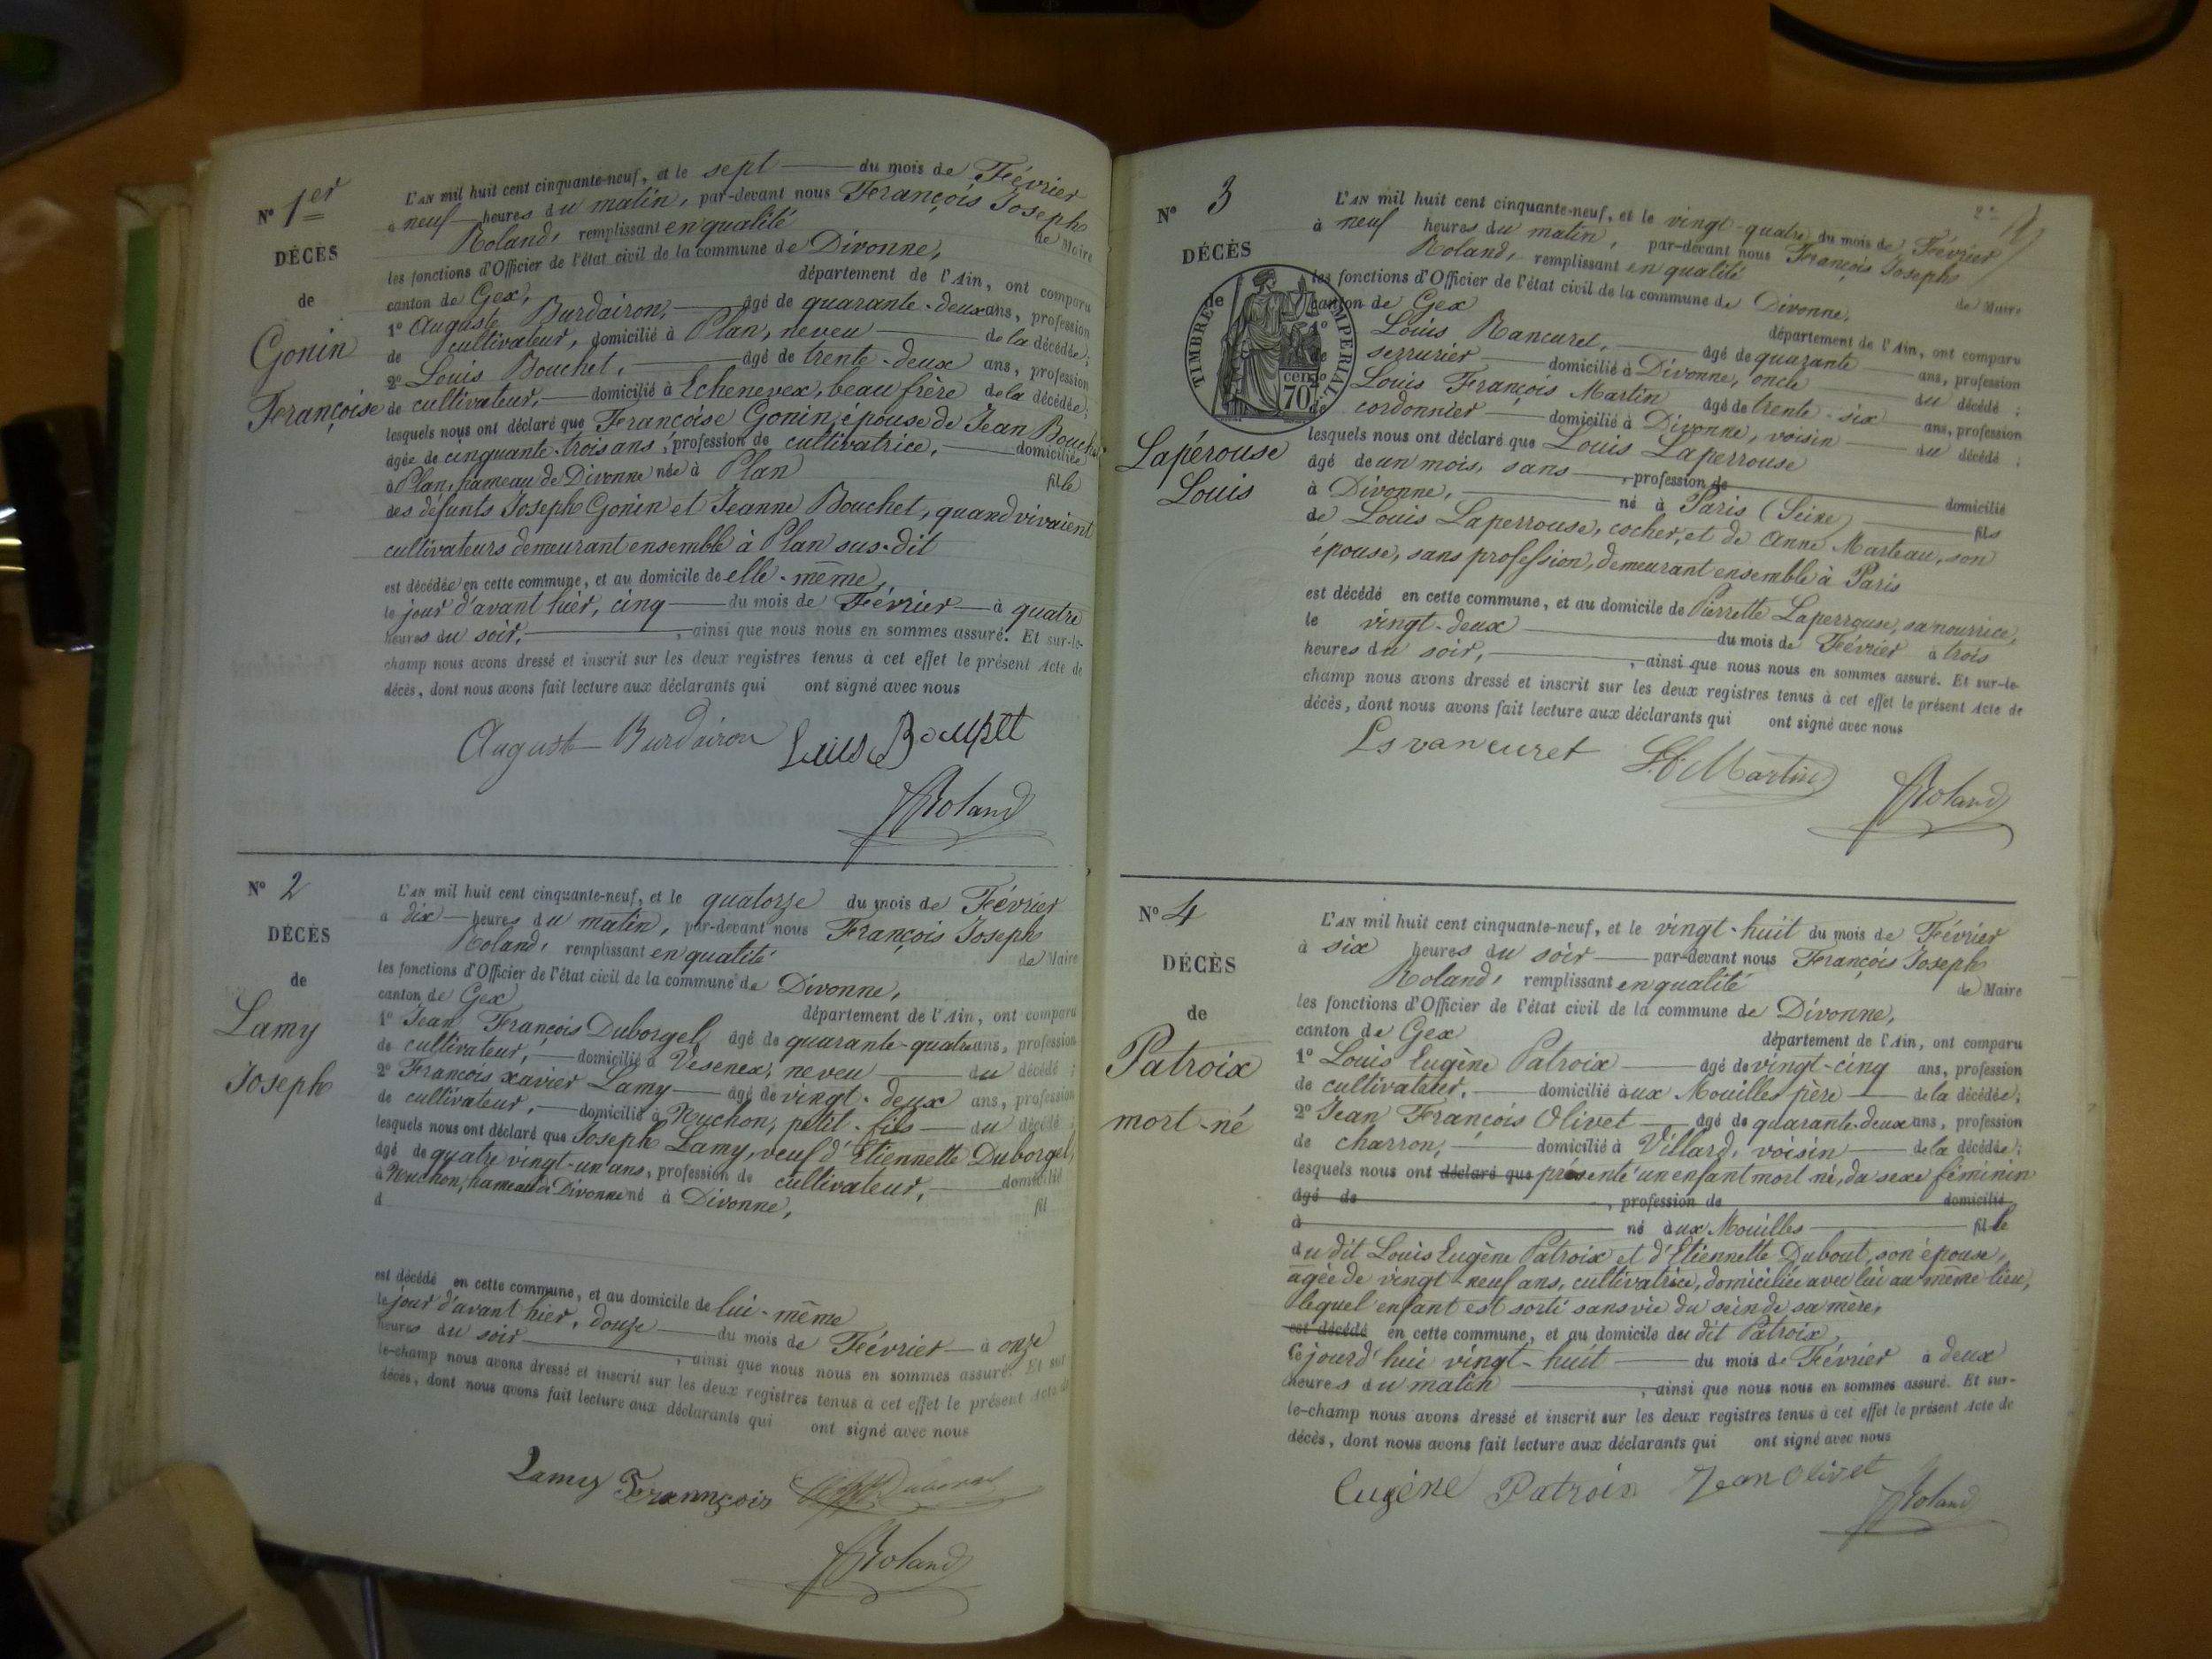 Nº 1er
DÉCÈS
de
Gonin
Françoise
L'AN mil huit cent cinquante-neuf, et le sept du mois de Février
à neuf heures du matin, par-devant nous François Joseph
Roland, remplissant en qualité de Maire
les fonctions d'Officier de l'état civil de la commune de Divonne,
canton de Gex, département de l'Ain, ont comparu
1º Auguste Burdairon, âgé de quarante-deux ans, profession
de cultivateur, domicilié à Plan, neveu de la décédée;
2º Louis Bouchet, âgé de trente-deux ans, profession
de cultivateur, domicilié à Echenevex, beau frère de la décédée;
lesquels nous ont déclaré que Françoise Gonin, épouse de Jean Bouchet
âgée de cinquante-trois ans, profession de cultivatrice, domiciliée
à Plan, hameau de Divonne née à Plan fille
des défunts Joseph Gonin et Jeanne Bouchet, quand vivaient
cultivateurs demeurant ensemble à Plan sus-dit
est décédée en cette commune, et au domicile de elle-même,
le jour d'avant hier, cinq du mois de Février à quatre
heures du soir, ainsi que nous nous en sommes assuré. Et sur-le-
champ nous avons dressé et inscrit sur les deux registres tenus à cet effet le présent Acte de
décès, dont nous avons fait lecture aux déclarants qui ont signé avec nous
August Burdairon Louis Bouchet
Roland
Nº 2
DÉCÈS
de
Lamy
Joseph
L'AN mil huit cent cinquante-neuf, et le quatorze du mois de Février
à dix heures du matin, par-devant nous François Joseph
Roland, remplissant en qualité de Maire
les fonctions d'Officier de l'état civil de la commune de Divonne,
canton de Gex département de l'Ain, ont comparu
1º Jean François Duborgel, âgé de quarante-quatre ans, profession
de cultivateur, domicilié à Vesenex, neveu du décédé;
2º François Xavier Lamy âgé de vingt-deux ans, profession
de cultivateur, domicilié à Huchon, petit-fils du décédé;
lesquels nous ont déclaré que Joseph Lamy, veuf d'Etiennette Duborgel,
âgé de quatre vingt-un ans, profession de cultivateur, domicilié
à Huchon, hameau de Divonne né à Divonne, fil
d
est décédé en cette commune, et au domicile de lui-même
le jour d'avant hier, douze du mois de Février à onze
heures du soir, ainsi que nous nous en sommes assuré. Et sur
le-champ nous avons dressé et inscrit sur les deux registres tenus à cet effet le présent Acte de
décès, dont nous avons fait lecture aux déclarants qui ont signé avec nous
Lamy Frannçois Duborgel
Roland
Nº 3
DÉCÈS
de
TIMBRE IMPERIAL
cent
70
Lapérouse
Louis
L'AN mil huit cent cinquante-neuf, et le vingt-quatre du mois de Février
à neuf heures du matin, par-devant nous François Joseph
Roland, remplissant en qualité de Maire
les fonctions d'Officier de l'état civil de la commune de Divonne,
canton de Gex département de l'Ain, ont comparu
1º Louis Rancuret, âgé de quarante ans, profession
de serrurier domicilié à Divonne, oncle du décédé;
2º Louis François Martin âgé de trente-six ans, profession
de cordonnier domicilié à Divonne, voisin du décédé;
lesquels nous ont déclaré que Louis Laperrouse
âgé de un mois, sans profession de domicilié
à Divonne, né à Paris (Seine) fils
de Louis Laperrouse, cocher, et de Anne Marteau, son
épouse, sans profession, demeurant ensemble à Paris
est décédé en cette commune, et au domicile de Pierrette Laperrouse, sa nourrice,
le vingt-deux du mois de Février à trois
heures du soir, ainsi que nous nous en sommes assuré. Et sur-le-
champ nous avons dressé et inscrit sur les deux registres tenus à cet effet le présent Acte de
décès, dont nous avons fait lecture aux déclarants qui ont signé avec nous
Ls rancuret L.f. Martin
Roland
Nº 4
DÉCÈS
de
Patroix
mort-né
L'AN mil huit cent cinquante-neuf, et le vingt-huit du mois de Février
à six heures du soir par-devant nous François Joseph
Roland, remplissant en qualité de Maire
les fonctions d'Officier de l'état civil de la commune de Divonne,
canton de Gex département de l'Ain, ont comparu
1º Louis Eugène Patroix âgé de vingt-cinq ans, profession
de cultivateur, domicilié aux Mouilles père de la décédée;
2º Jean François Olivet âgé de quarante-deux ans, profession
de charron, domicilié à Villard, voisin de la décédée;
lesquels nous ont déclaré que présenté un enfant mort né, du sexe féminin
âgé de , profession de domicilié
à né aux Mouilles fille
du dit Louis Eugène Patroix et d'Etiennette Dubout, son épouse,
agée de vingt-neuf ans, cultivatrice, domiciliée avec lui au même lieu,
lequel enfant est sorti sans vie du sein de sa mère,
est décédé en cette commune, et au domicile du dit Patroix
Cejourd'hui vingt-huit du mois de Février à deux
heures du matin, ainsi que nous nous en sommes assuré. Et sur-
le-champ nous avons dressé et inscrit sur les deux registres tenus à cet effet le présent Acte de
décès, dont nous avons fait lecture aux déclarants qui ont signé avec nous
Eugéne Patroix Jean Olivet
Roland